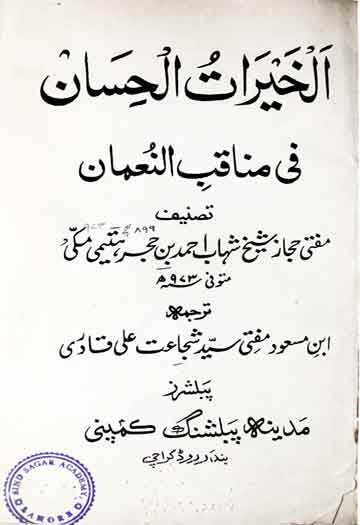 اَلْخَيْرَاتُ الْحِسَانْ
فی مناقبِ النُعمان
تصنیف
مفتی حجاز شیخ شہاب احمد بن حجر ہیتمی مکیؒ
متوفی ۹۷۳ھ
ترجمہ
ابنِ مسعود مفتی سیّد شجاعت علی قادری
پبلشرز
مدینہ پبلشنگ کمپنی
بندر روڈ کراچی
SIND SAGAR ACADEMY
LAHORE